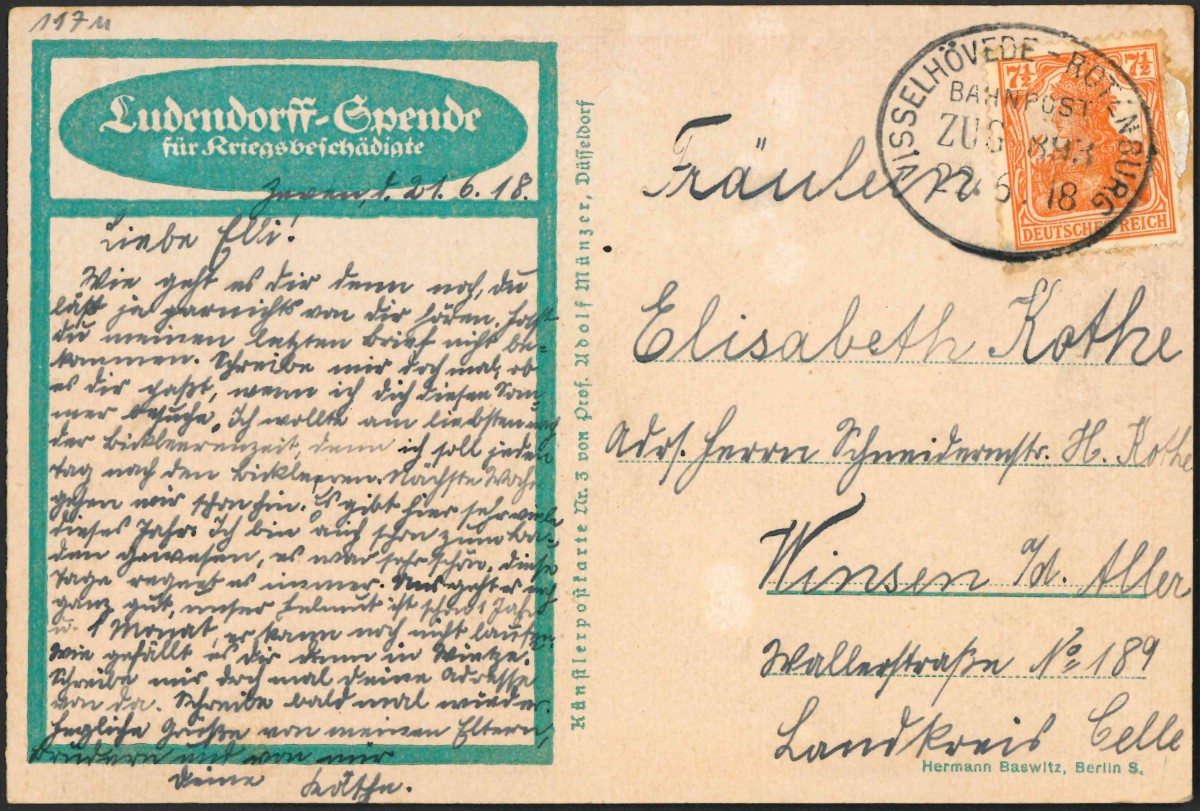 117 M
Ludendorff-Spende
für Kriegsbeschädigte
Zeven, d. 21. 6. 18.
Liebe Elli!
Wie geht es dir denn noch, du
läßt ja garnichts von dir hören. Hast
du meinen letzten Brief nicht be-
kommen. Schreibe mir doch mal, ob
es dir paßt, wenn ich dich diesen Som-
mer besuche. Ich wollte am liebsten nach
der Bickbeerenzeit, denn ich soll jeden
Tag nach den Bickbeeren. Nächste Woche
gehen wir schon hin. Es gibt hier sehr viele
dieses Jahr. Ich bin auch schon zum Ba-
den gewesen, es war sehr schön. Diese
Tage regnet es immer. Uns geht es noch
ganz gut, unser Helmut ist schon 1 Jahr
u. 1 Monat, er kann noch nicht laufen.
Wie gefällt es dir denn in Wietze.
Schreibe mir doch mal deine Adresse
von da. Schreibe bald mal wieder.
Herzliche Grüße von meinen Eltern,
Brüdern und von mir
Deine Käthe.
Künstlerpostkarte Nr. 3 von Prof. Adolf Münzer, Düsseldorf
VISSELHÖVEDE - ROTENBURG
BAHNPOST
ZUG 893
22 6. 18
7½ 7½
DEUTSCHES REICH
Fräulein
Elisabeth Kothe
Adrs. Herrn Schneidermstr. H. Kothe
Winsen a/d. Aller
Wallerstraße No 189
Landkreis Celle
Hermann Baswitz, Berlin S.